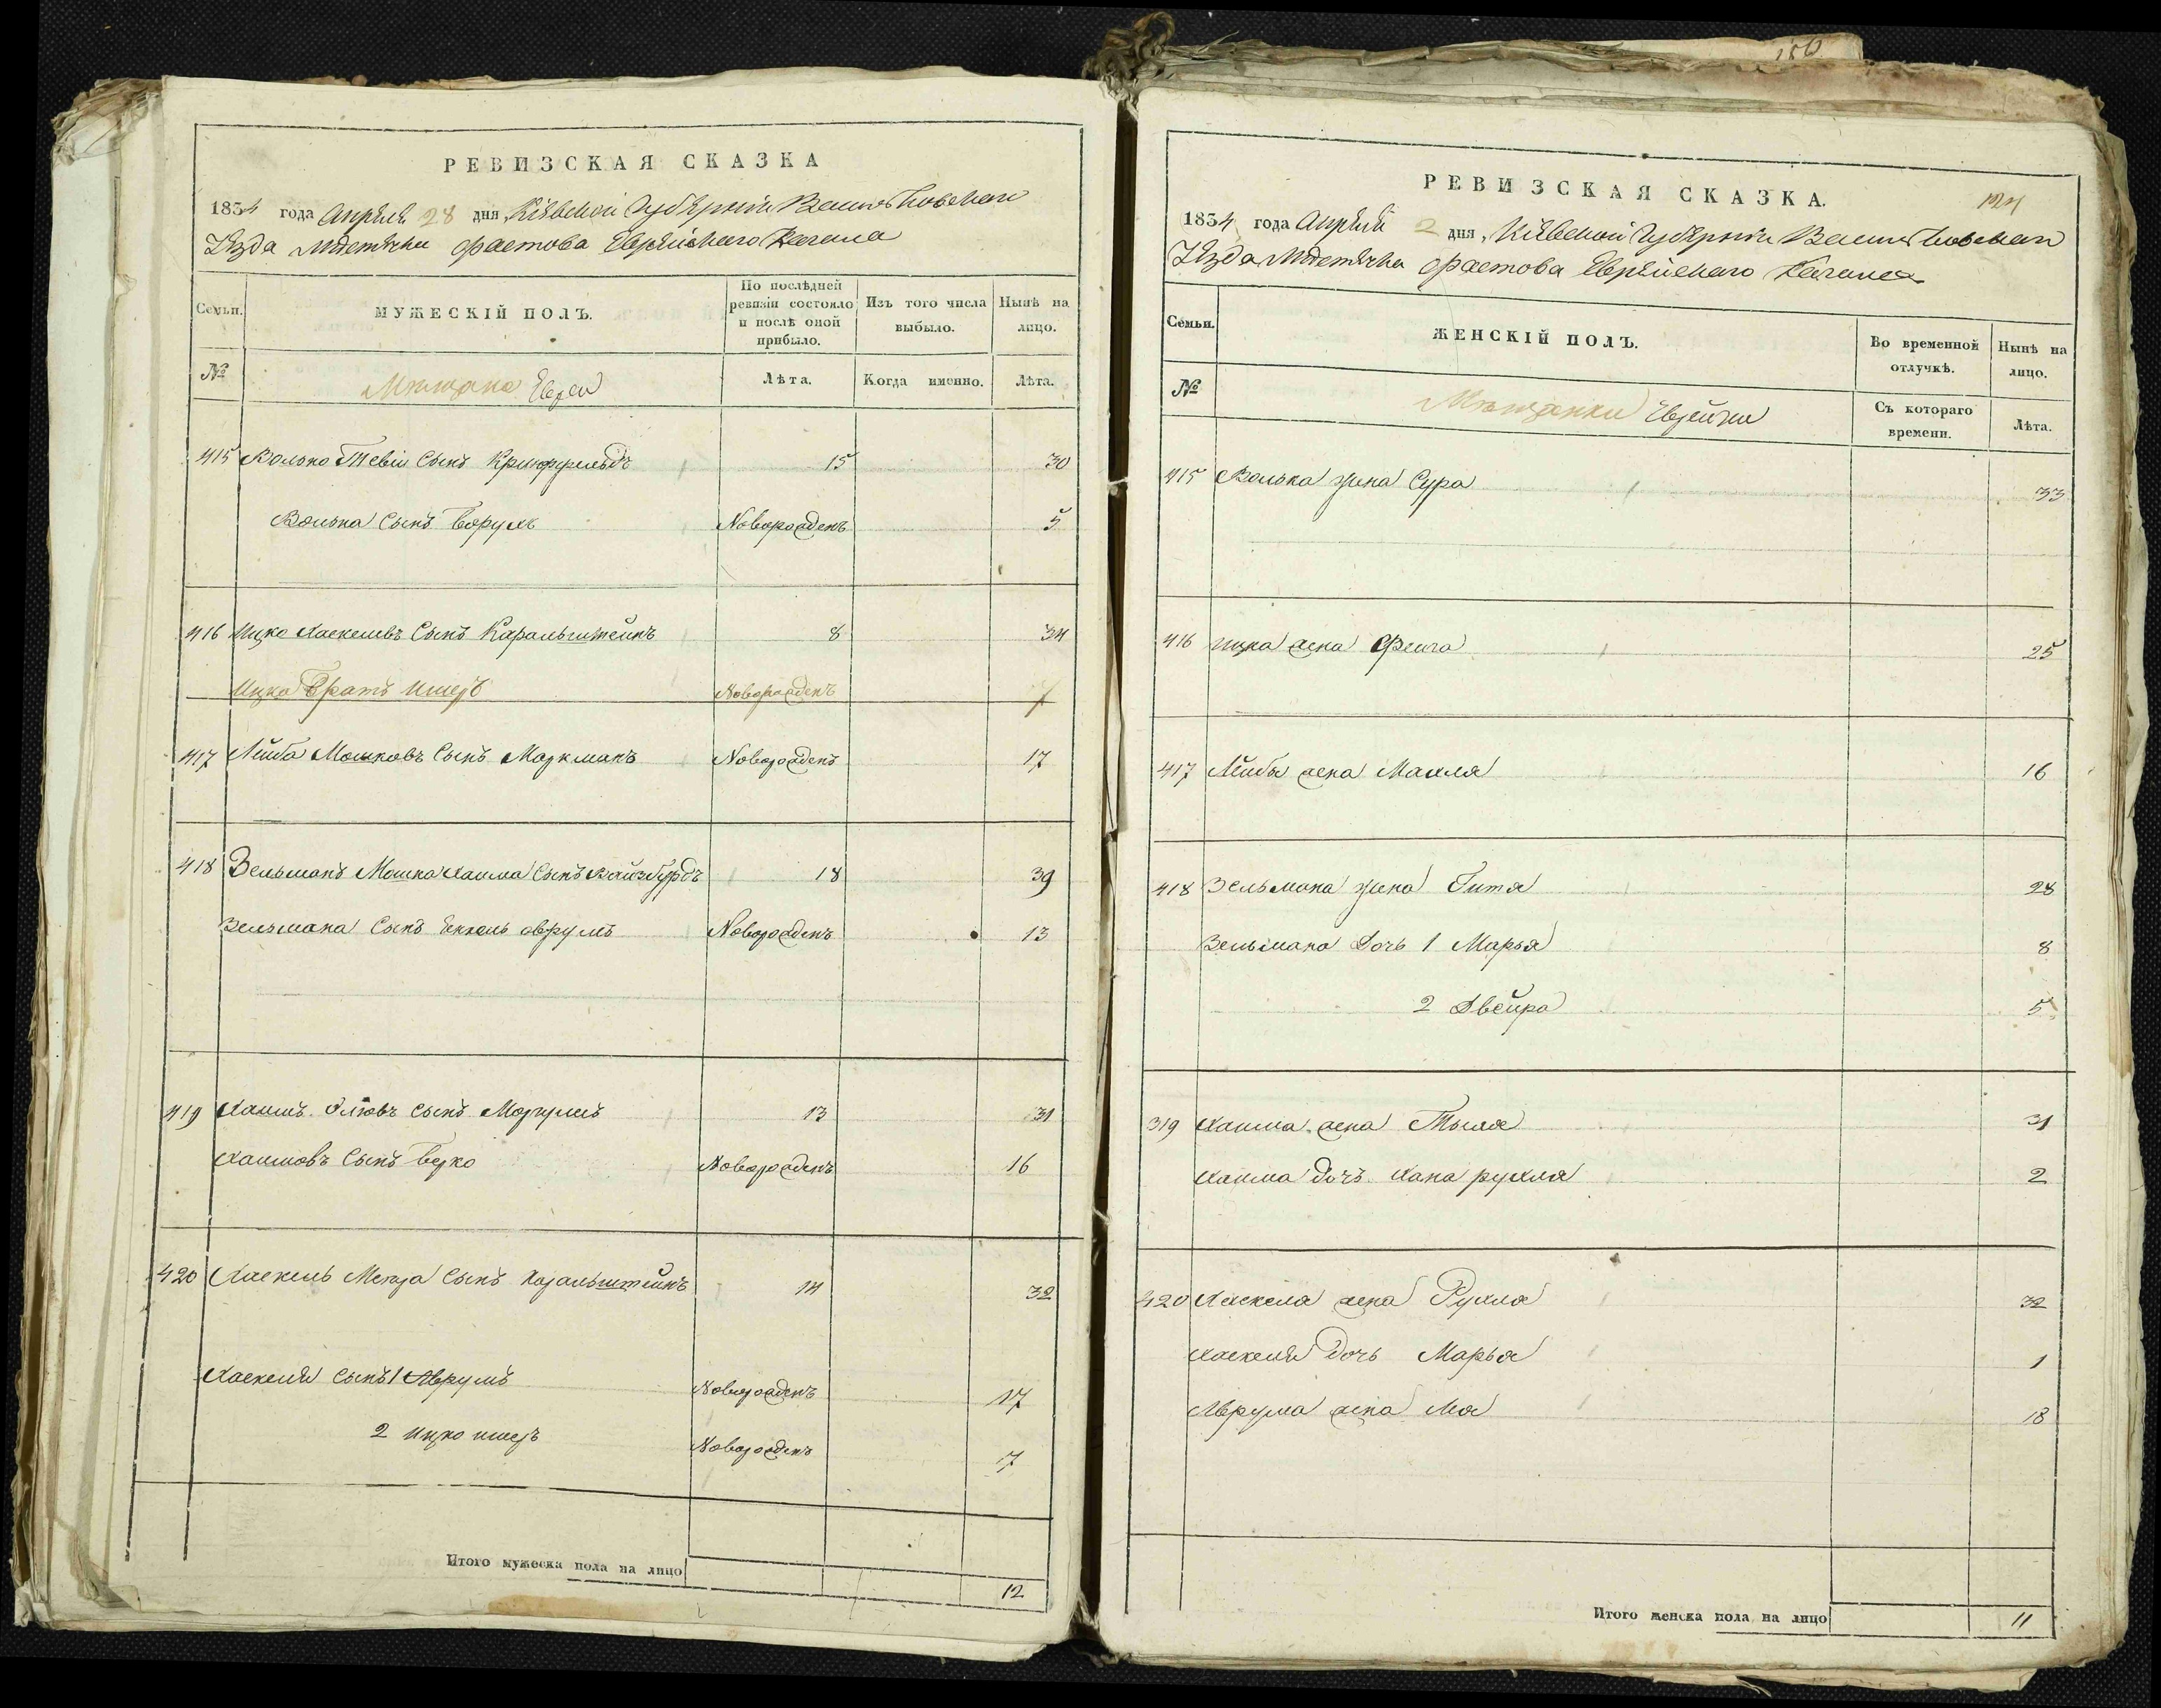 РЕВИЗСКАЯ СКАЗКА
1834 года Апреля 28 дня, Кіевской Губерніи Васильковскаго
Уѣзда Мѣстечка Фастова Еврейскаго Кагала
Семьи.
МУЖЕСКІЙ ПОЛЪ.
По послѣдней ревизіи состояло и послѣ оной прибыло.
Изъ того числа выбыло.
Нынѣ на лицо.
№
Мѣщане Евреи
Лѣта.
Когда именно.
Лѣта.
415 Волько Тевія Сынъ 15 30
Волька Сынъ Борухъ Новорожденъ 5
416 Ицко Хаскелевъ Сынъ Каральштейнъ 8 34
Ицка Братъ Ишеръ Новорожденъ 7
417 Лейба Мошковъ Сынъ Маркманъ Новорожденъ 17
418 Зельманъ Мошка Хаима Сынъ Вайзбурдъ 18 39
Зельмана Сынъ Енкель Аврумъ Новорожденъ 13
419 Хаимъ Сынъ 13 31
Хаимовъ Сынъ Берко Новорожденъ 16
420 Хаскель Сынъ Каральштейнъ 14 32
Хаскеля Сынъ 1 Аврумъ Новорожденъ 17
2 Ицко Ишеръ Новорожденъ 7
Итого мужеска пола на лицо 12
156
124
РЕВИЗСКАЯ СКАЗКА.
1834 года Апреля 2 дня, Кіевской Губерніи Васильковскаго
Уѣзда Мѣстечка Фастова Еврейскаго Кагала
Семьи.
ЖЕНСКІЙ ПОЛЪ.
Во временной отлучкѣ.
Нынѣ на лицо.
№
Мѣщанки Еврейки
Съ котораго времени.
Лѣта.
415 Волька жена Сура 33
416 Ицка жена Фейга 25
417 Лейбы жена Махля 16
418 Зельмана жена Гитя 28
Зельмана Дочь 1 Марья 8
2 Двейра 5
319 Хаима жена Тыля 31
Хаима дочь Хана рухля 2
420 Хаскеля жена Рухля 32
Хаскеля дочь Марья 1
Аврума жена 18
Итого женска пола на лицо 11